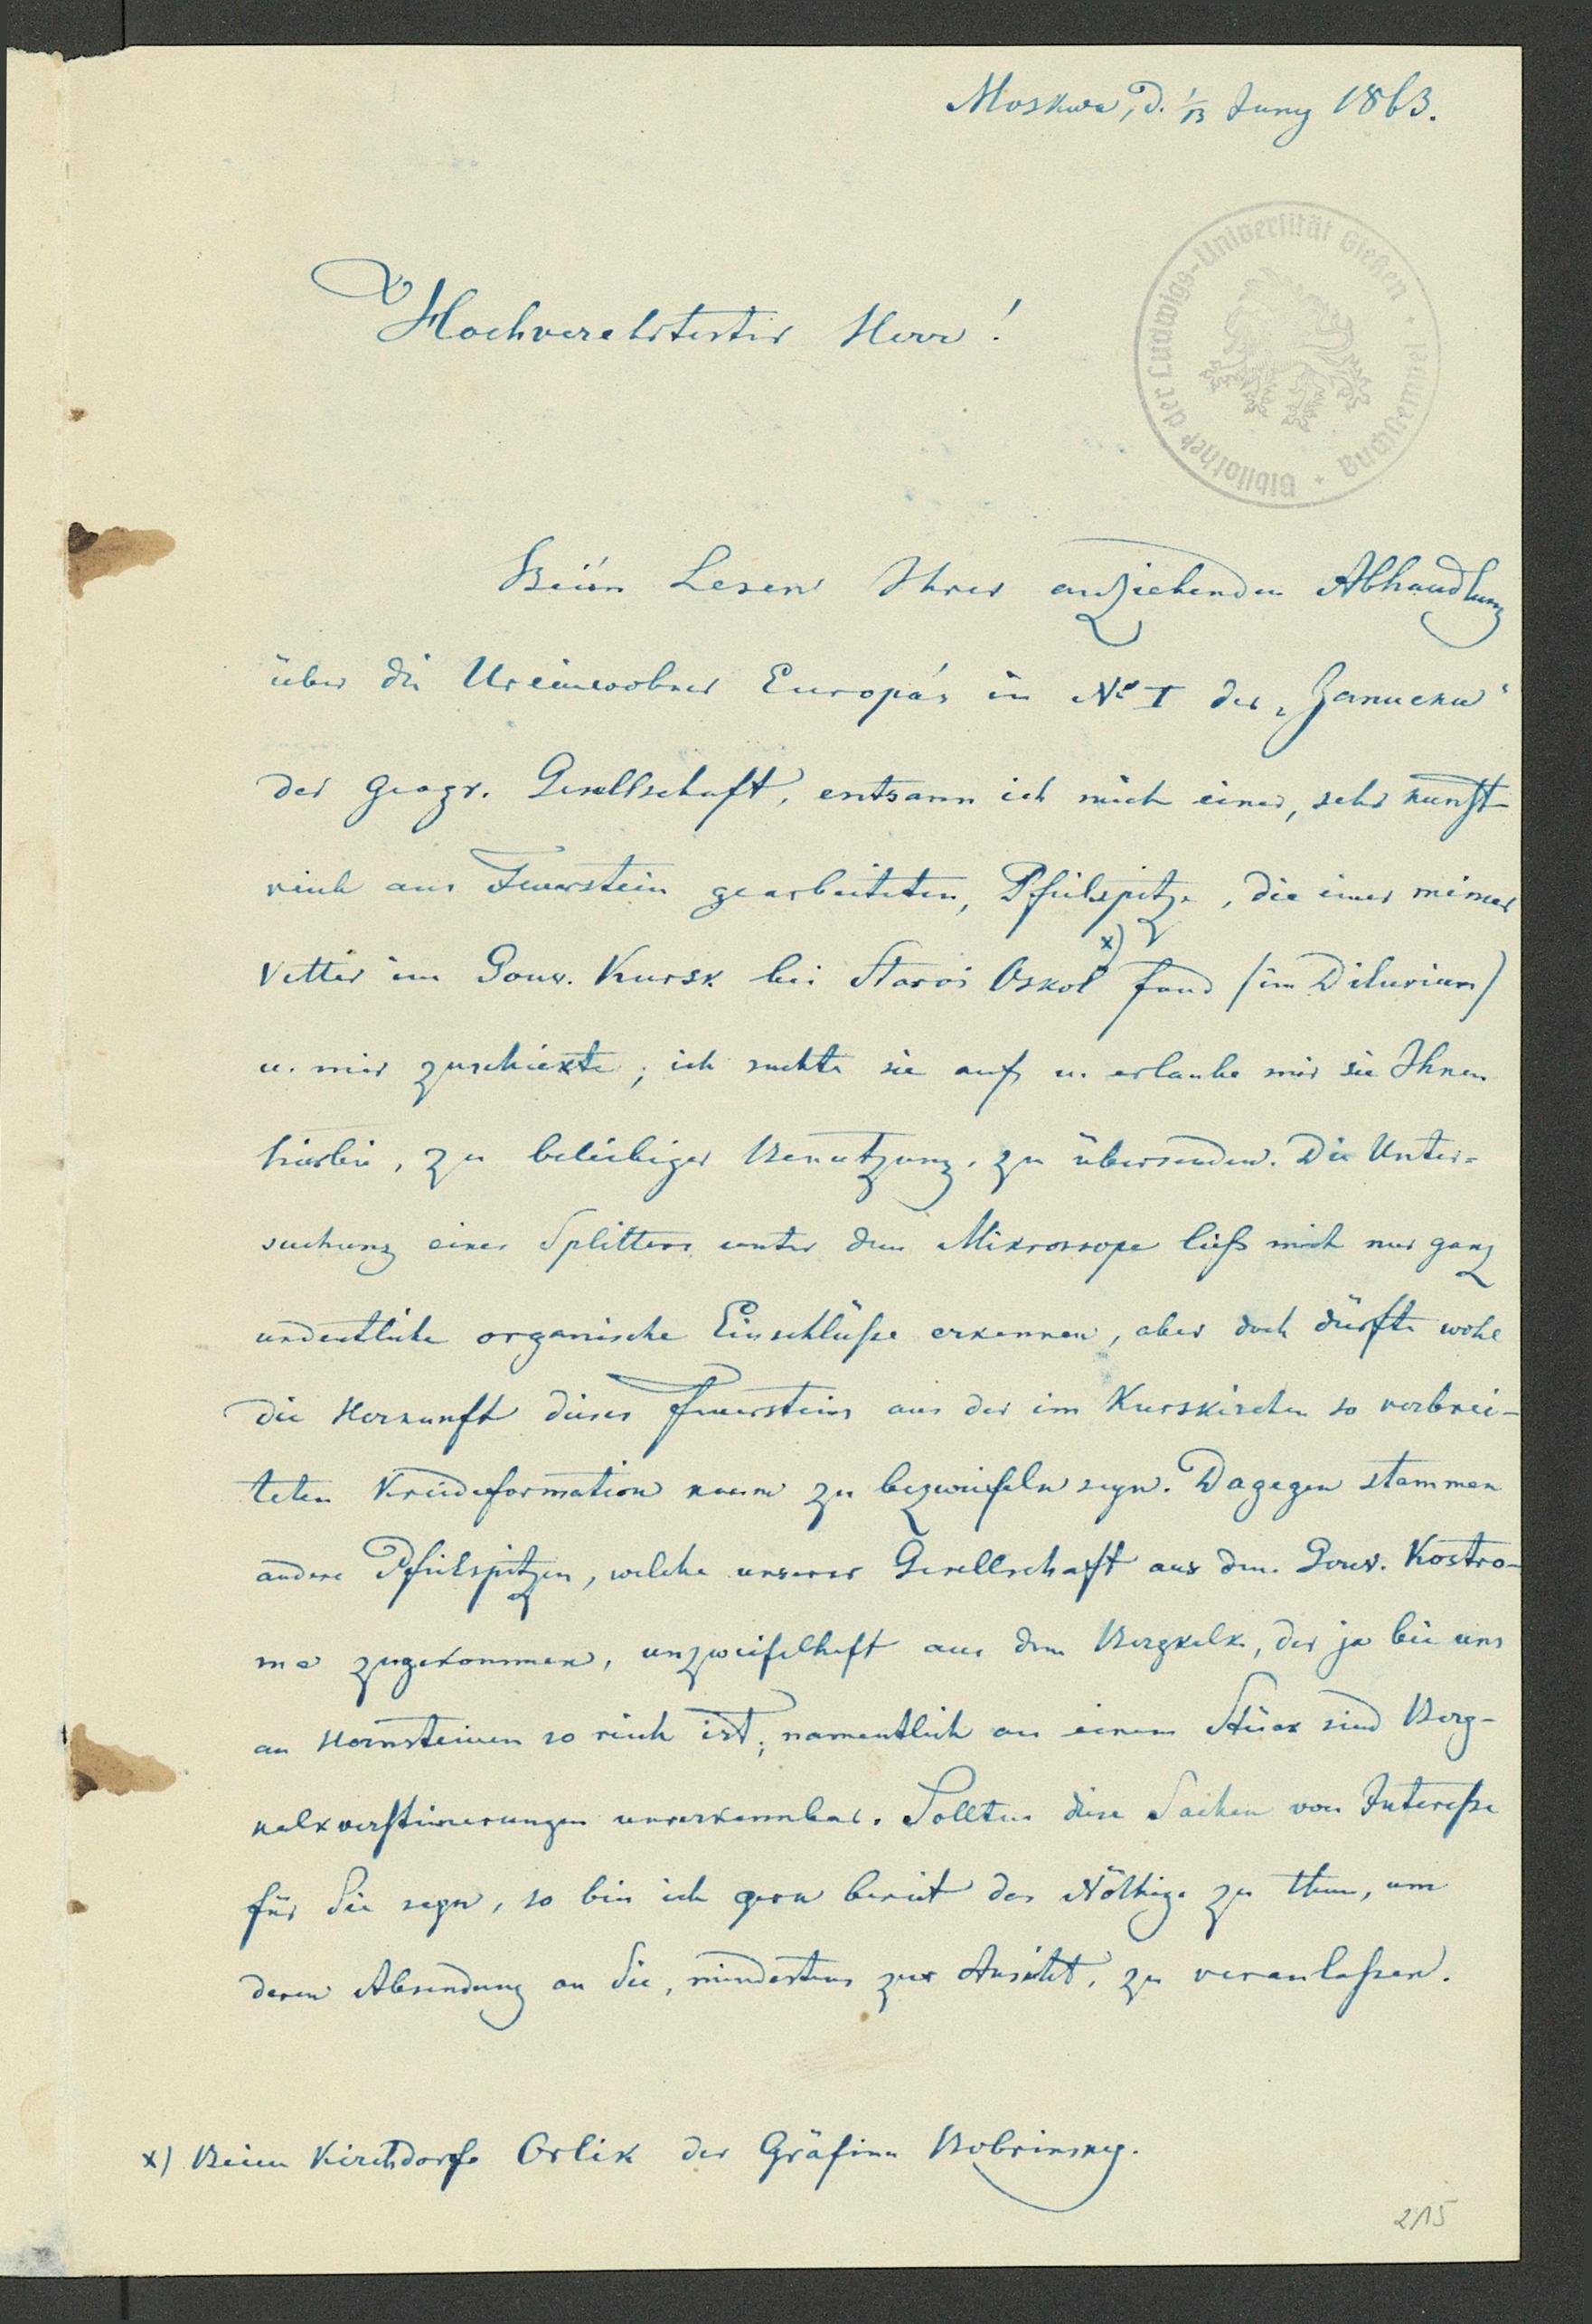 Moskwa, d. 1/13 Juny 1863.
Bibliothek der Ludwigs-Universität Gießen * Buchstempel *
Hochverehrtester Herr!
Beim Lesen Ihrer anziehenden Abhandlung
über die Ureinwohner Europa's in No I der „Записки“
der geogr. Gesellschaft, entsann ich mich einer, sehr kunst-
reich aus Feuerstein gearbeiteten, Pfeilspitze, die einer meiner
Vetter im Gouv. Kursk bei Staroi Oskol x) fand (im Diluvium)
u. mir zuschickte; ich suchte sie auf u. erlaube mir sie Ihnen
hierbei, zu beliebiger Benutzung, zu übersenden. Die Unter-
suchung eines Splitters unter dem Mikroskope ließ mich nur ganz
undeutliche organische Einschlüße erkennen, aber doch dürfte wohl
die Herkunft dieses Feuersteins aus der im Kurskischen so verbrei-
teten Kreideformation kaum zu bezweifeln seyn. Dagegen stammen
andere Pfeilspitzen, welche unserer Gesellschaft aus dem Gouv. Kostro-
ma zugekommen, unzweifelhaft aus dem Bergkalk, der ja bei uns
an Hornsteinen so reich ist; namentlich an einem Stück sind Berg-
kalkversteinerungen unverkennbar. Sollten diese Sachen von Intereße
für Sie seyn, so bin ich gern bereit das Nöthige zu thun, um
deren Absendung an Sie, mindestens zur Ansicht, zu veranlaßen.
x) Beim Kirchdorfe Orlik der Gräfinn Bobrinsky.
2/15